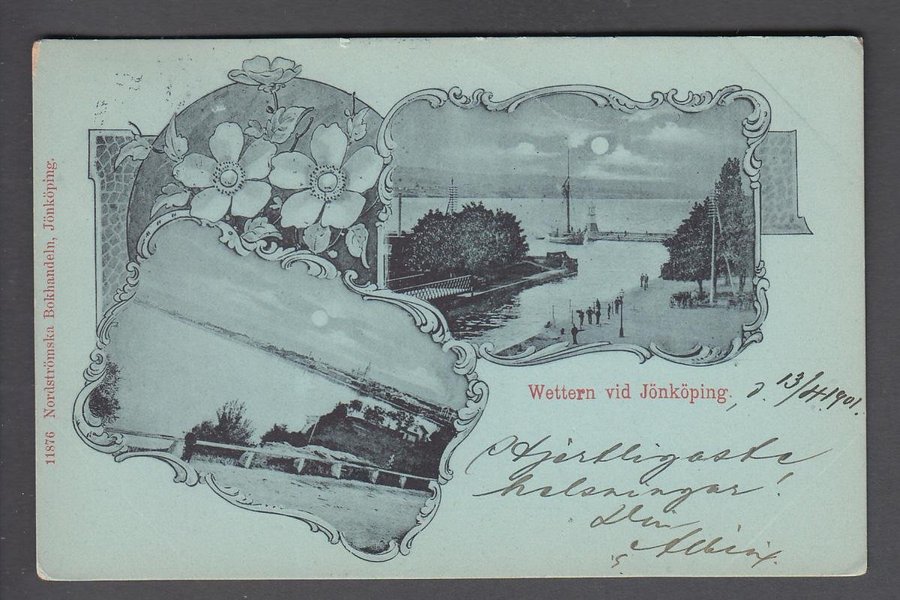 11876 Nordströmska Bokhandeln, Jönköping.
Wettern vid Jönköping. d. 13/4 1901.
Hjertligaste
helsningar!
Din
Albin.